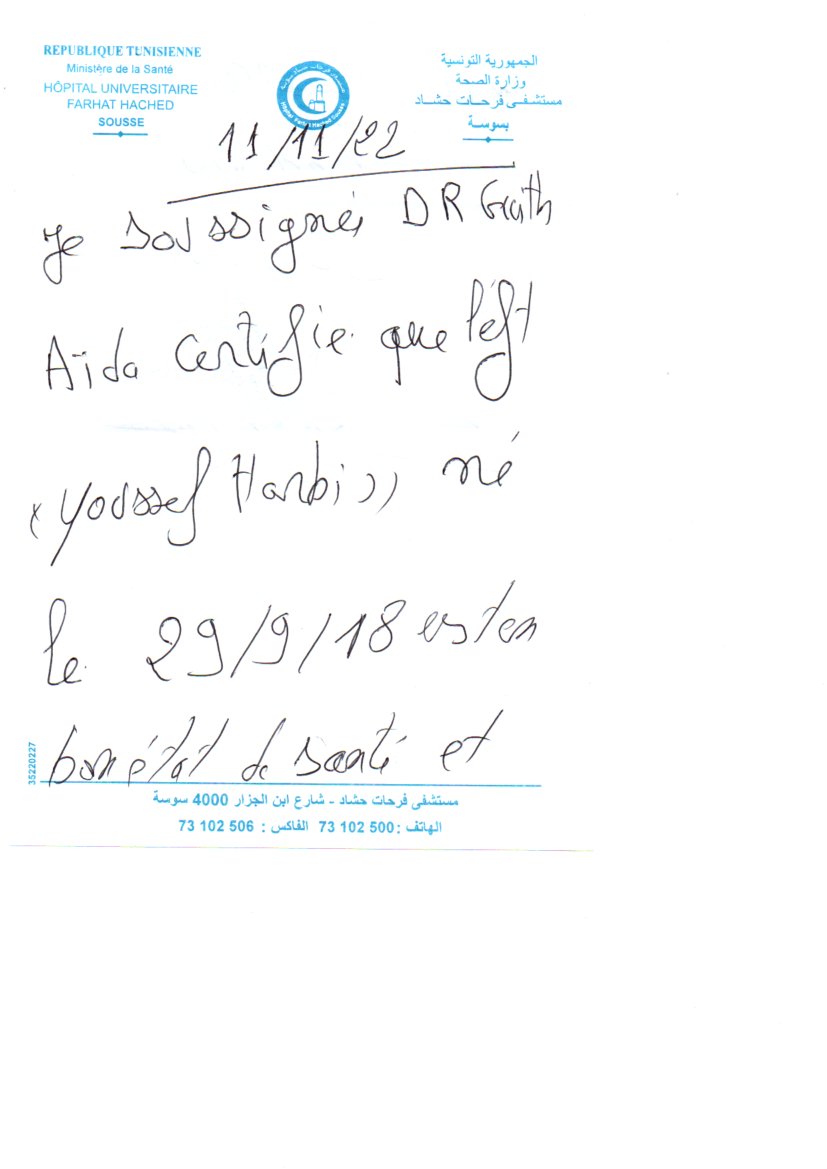 REPUBLIQUE TUNISIENNE
Ministère de la Santé
HÔPITAL UNIVERSITAIRE
FARHAT HACHED
SOUSSE
الجمهورية التونسية
وزارة الصحة
مستشفى فرحات حشاد
بسوسة
11/11/22
Je soussigné DR
Aïda certifie que l'éft
"Youssef Harbi" né
le 29/9/18 est en
bon état de santé et
35220227
مستشفى فرحات حشاد - شارع ابن الجزار 4000 سوسة
الهاتف : 73 102 500 الفاكس : 73 102 506